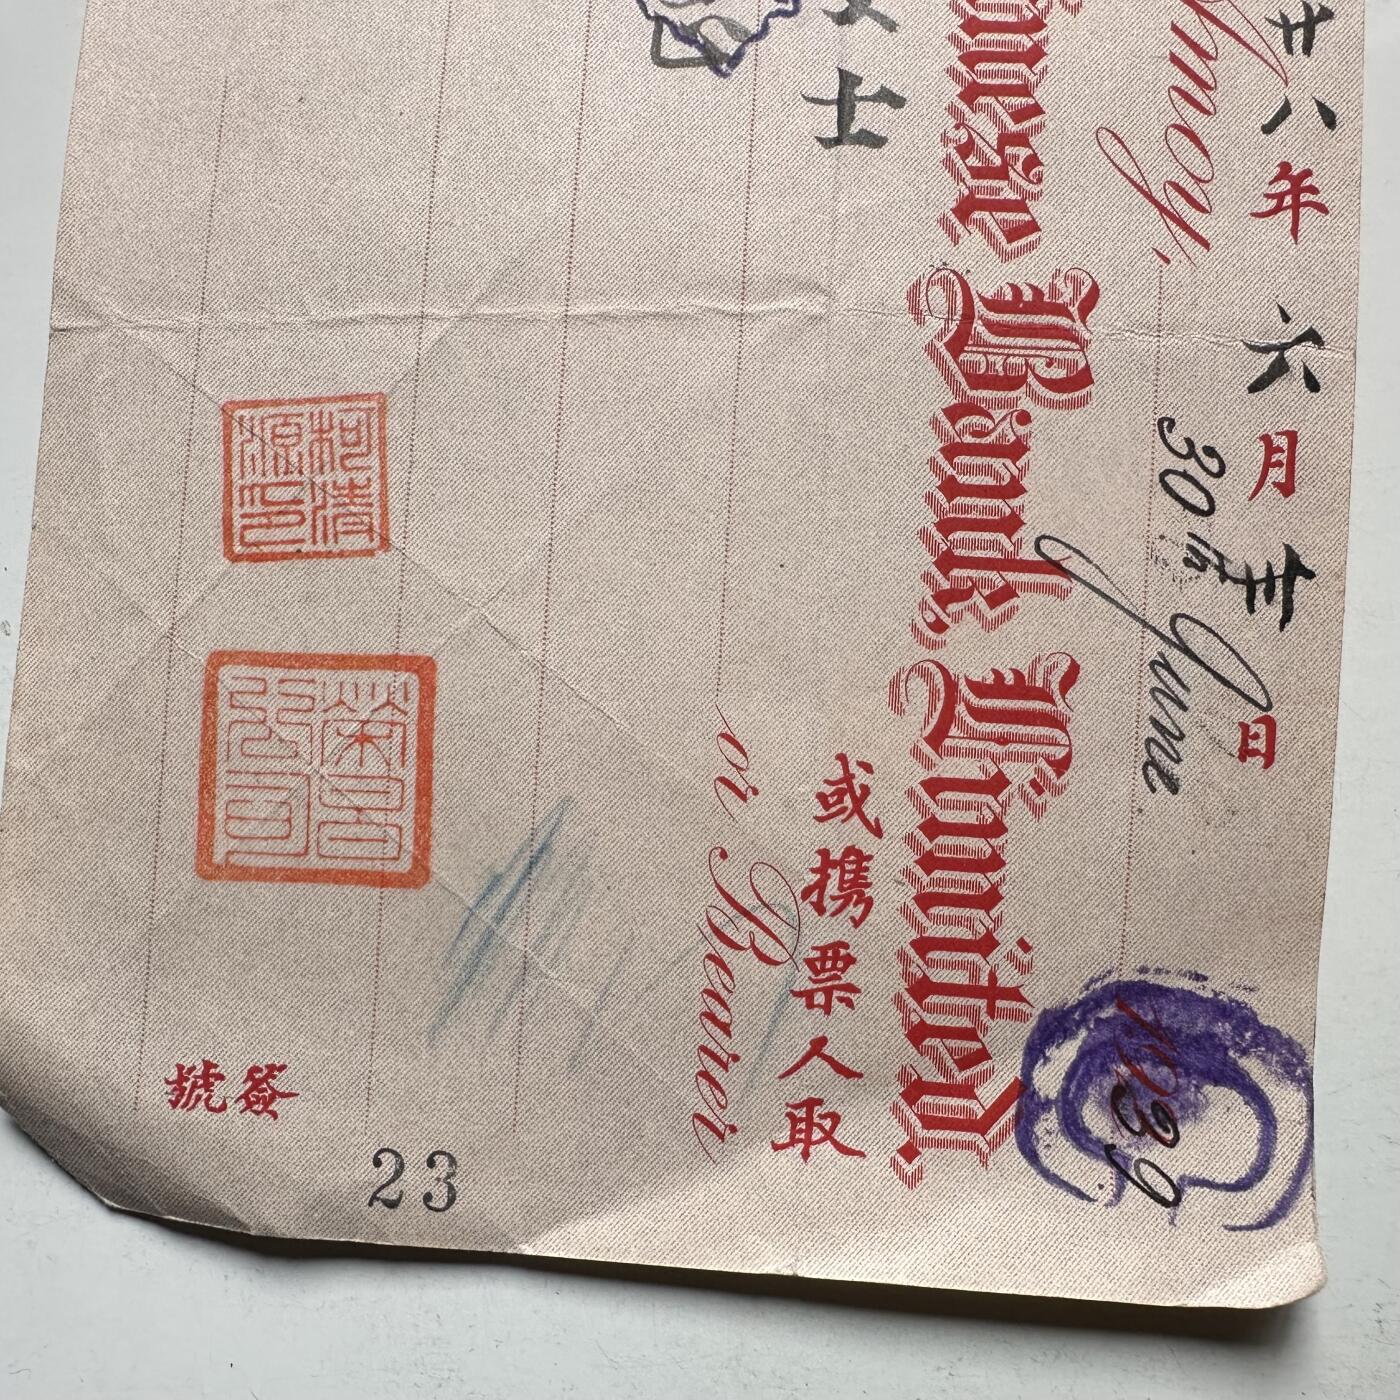 廿八年六月卅日
Amoy, 30th June 1939
inese Bank, Limited.
士 或携票人取
or Bearer
柯清源印
號簽
23